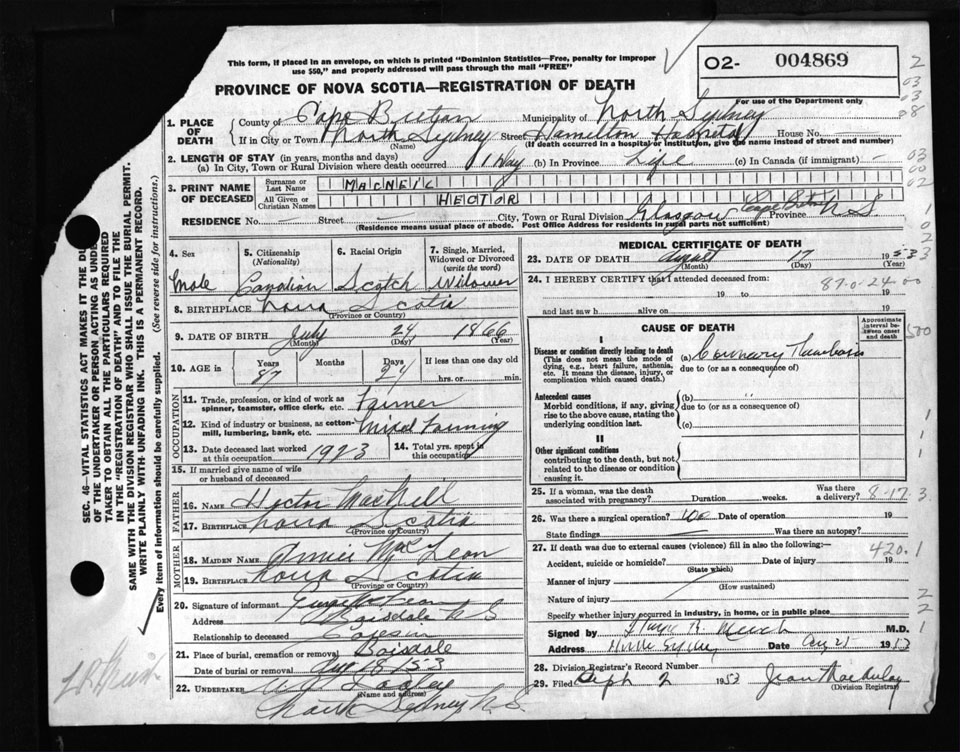 This form, if placed in an envelope, on which is printed "Dominion Statistics—Free, penalty for improper
use $50," and properly addressed will pass through the mail "FREE"
O2- 004869
For use of the Department only
PROVINCE OF NOVA SCOTIA—REGISTRATION OF DEATH
1. PLACE OF DEATH
County of Cape Breton Municipality of North Sydney
If in City or Town North Sydney Street Hamilton Hospital House No.
(Name) (If death occurred in a hospital or institution, give the name instead of street and number)
2. LENGTH OF STAY (in years, months and days)
(a) In City, Town or Rural Division where death occurred 1 Day (b) In Province Life (c) In Canada (if immigrant) —
3. PRINT NAME OF DECEASED
Surname or Last Name MACNEIL
All Given or Christian Names HECTOR
RESIDENCE No. — Street — City, Town or Rural Division Glasgow Cape Breton Province N S
(Residence means usual place of abode. Post Office Address for residents in rural parts not sufficient)
4. Sex Male
5. Citizenship (Nationality) Canadian
6. Racial Origin Scotch
7. Single, Married, Widowed or Divorced (write the word) Widower
8. BIRTHPLACE Nova Scotia
(Province or Country)
9. DATE OF BIRTH July 24 1866
(Month) (Day) (Year)
10. AGE Years 87 Months Days 24 If less than one day old
hrs. or min.
OCCUPATION
11. Trade, profession, or kind of work as spinner, teamster, office clerk, etc. Farmer
12. Kind of industry or business, as cotton-mill, lumbering, bank, etc. Mixed Farming
13. Date deceased last worked at this occupation 1923 14. Total yrs. spent in this occupation
15. If married give name of wife or husband of deceased
FATHER
16. NAME Hector MacNeill
17. BIRTHPLACE Nova Scotia
(Province or Country)
MOTHER
18. MAIDEN NAME Annie McLean
19. BIRTHPLACE Nova Scotia
(Province or Country)
20. Signature of informant
Address Boisdale N S
Relationship to deceased Cousin
21. Place of burial, cremation or removal Boisdale
Date of burial or removal Aug 18/53
22. UNDERTAKER
(Name and address)
North Sydney N.S.
MEDICAL CERTIFICATE OF DEATH
23. DATE OF DEATH August 17 1953
(Month) (Day) (Year)
24. I HEREBY CERTIFY that I attended deceased from:
87-0-24-00
19 to 19
and last saw h alive on 19
CAUSE OF DEATH
Approximate interval between onset and death
I
Disease or condition directly leading to death
(This does not mean the mode of dying, e.g., heart failure, asthenia, etc. It means the disease, injury, or complication which caused death.)
(a) Coronary Thrombosis
due to (or as a consequence of)
Antecedent causes
Morbid conditions, if any, giving rise to the above cause, stating the underlying condition last.
(b)
due to (or as a consequence of)
(c)
II
Other significant conditions
contributing to the death, but not related to the disease or condition causing it.
25. If a woman, was the death associated with pregnancy? Duration weeks. Was there a delivery? 8-17
26. Was there a surgical operation? No Date of operation 19
State findings Was there an autopsy?
27. If death was due to external causes (violence) fill in also the following:— 420.1
Accident, suicide or homicide? Date of injury 19
(State which)
Manner of injury
(How sustained)
Nature of injury
Specify whether injury occurred in industry, in home, or in public place
Signed by M.D.
Address North Sydney Date Aug 21 1953
28. Division Registrar's Record Number
29. Filed Sept 2 1953
(Division Registrar)
SEC. 46—VITAL STATISTICS ACT MAKES IT THE DU
OF THE UNDERTAKER OR PERSON ACTING AS UNDE
TAKER TO OBTAIN ALL THE PARTICULARS REQUIRED
IN THE "REGISTRATION OF DEATH" AND TO FILE THE
SAME WITH THE DIVISION REGISTRAR WHO SHALL ISSUE THE BURIAL PERMIT.
WRITE PLAINLY WITH UNFADING INK. THIS IS A PERMANENT RECORD.
Every item of information should be carefully supplied. (See reverse side for instructions.)